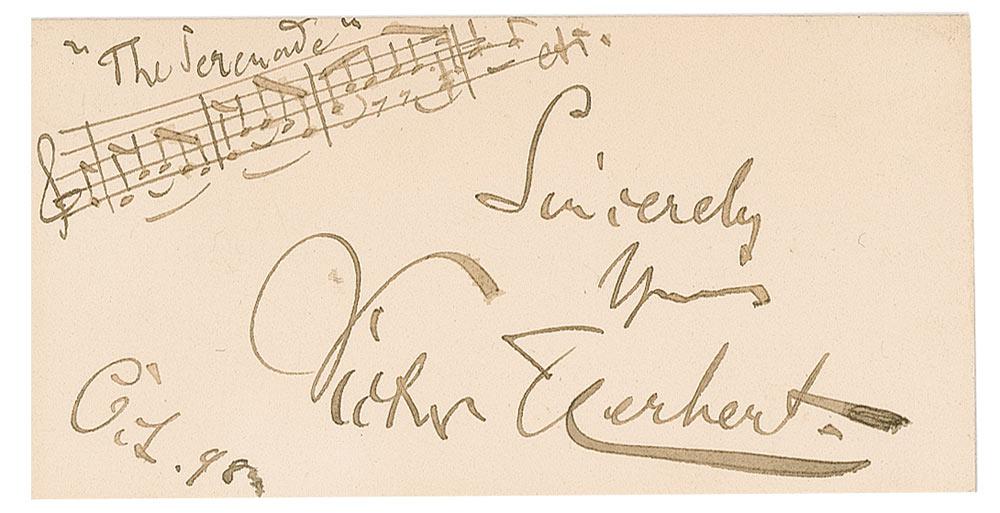 "The Serenade"
etc.
Sincerely
Yours
Victor Herbert.
98